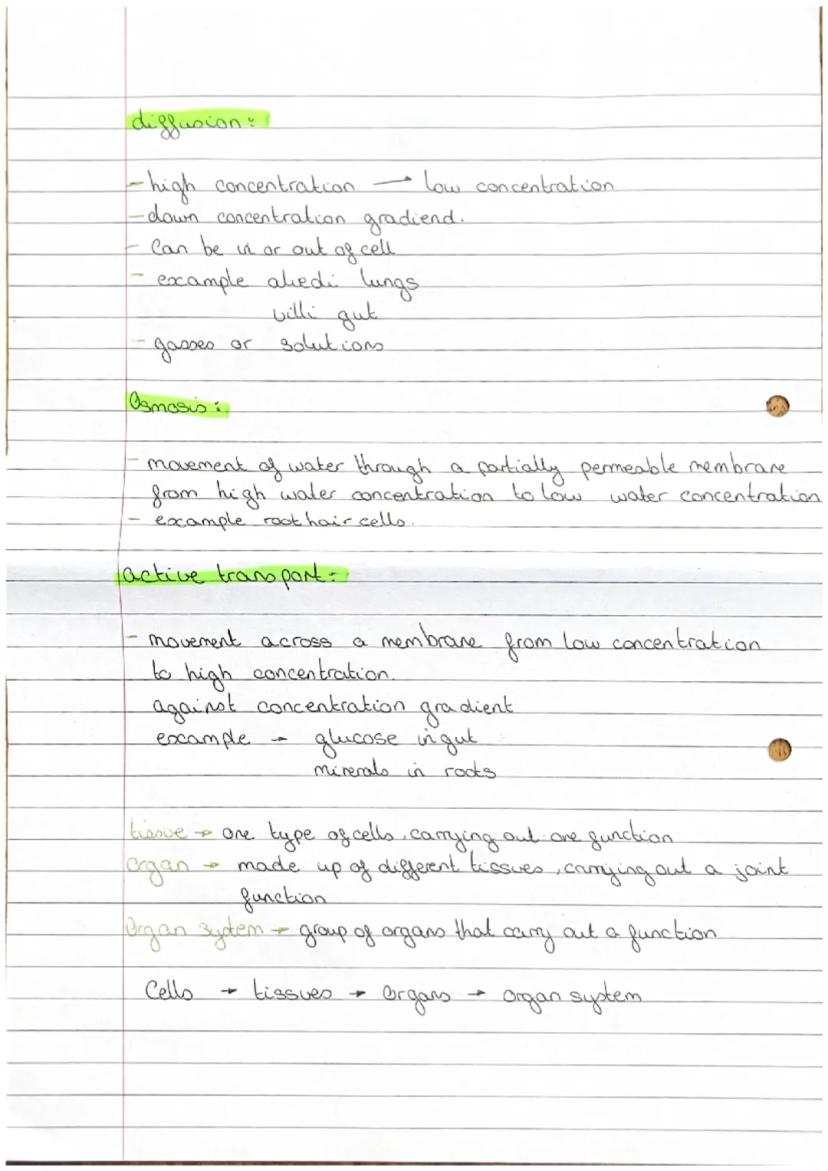 diffusion:
- high concentration → low concentration
- down concentration gradiend.
- Can be in or out of cell
- example alvedi lungs
villi gut
- gasses or solutions
Osmosis:
- movement of water through a partially permeable membrane
from high water concentration to low water concentration
- example root hair cells.
active transport:-
- movement across a membrane from low concentration
to high concentration.
against concentration gradient
example → glucose in gut
minerals in roots
tissue → one type of cells, carrying out one function
organ → made up of different tissues, carrying out a joint
function
Organ system → group of organs that carry out a function
Cells → tissues → organs → organ system